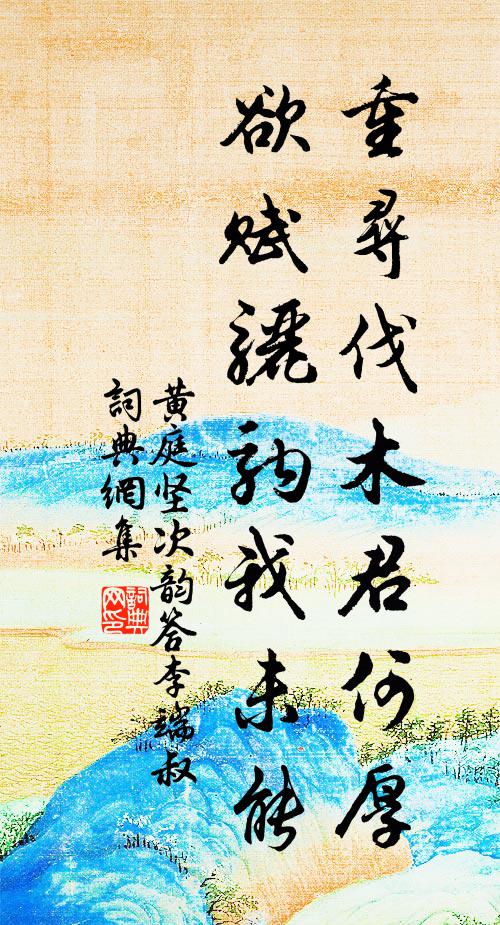 重尋伐木君何厚
欲赋驪駒我未能
黄庭坚次韵答李端叔
詞典網集
詞典網印